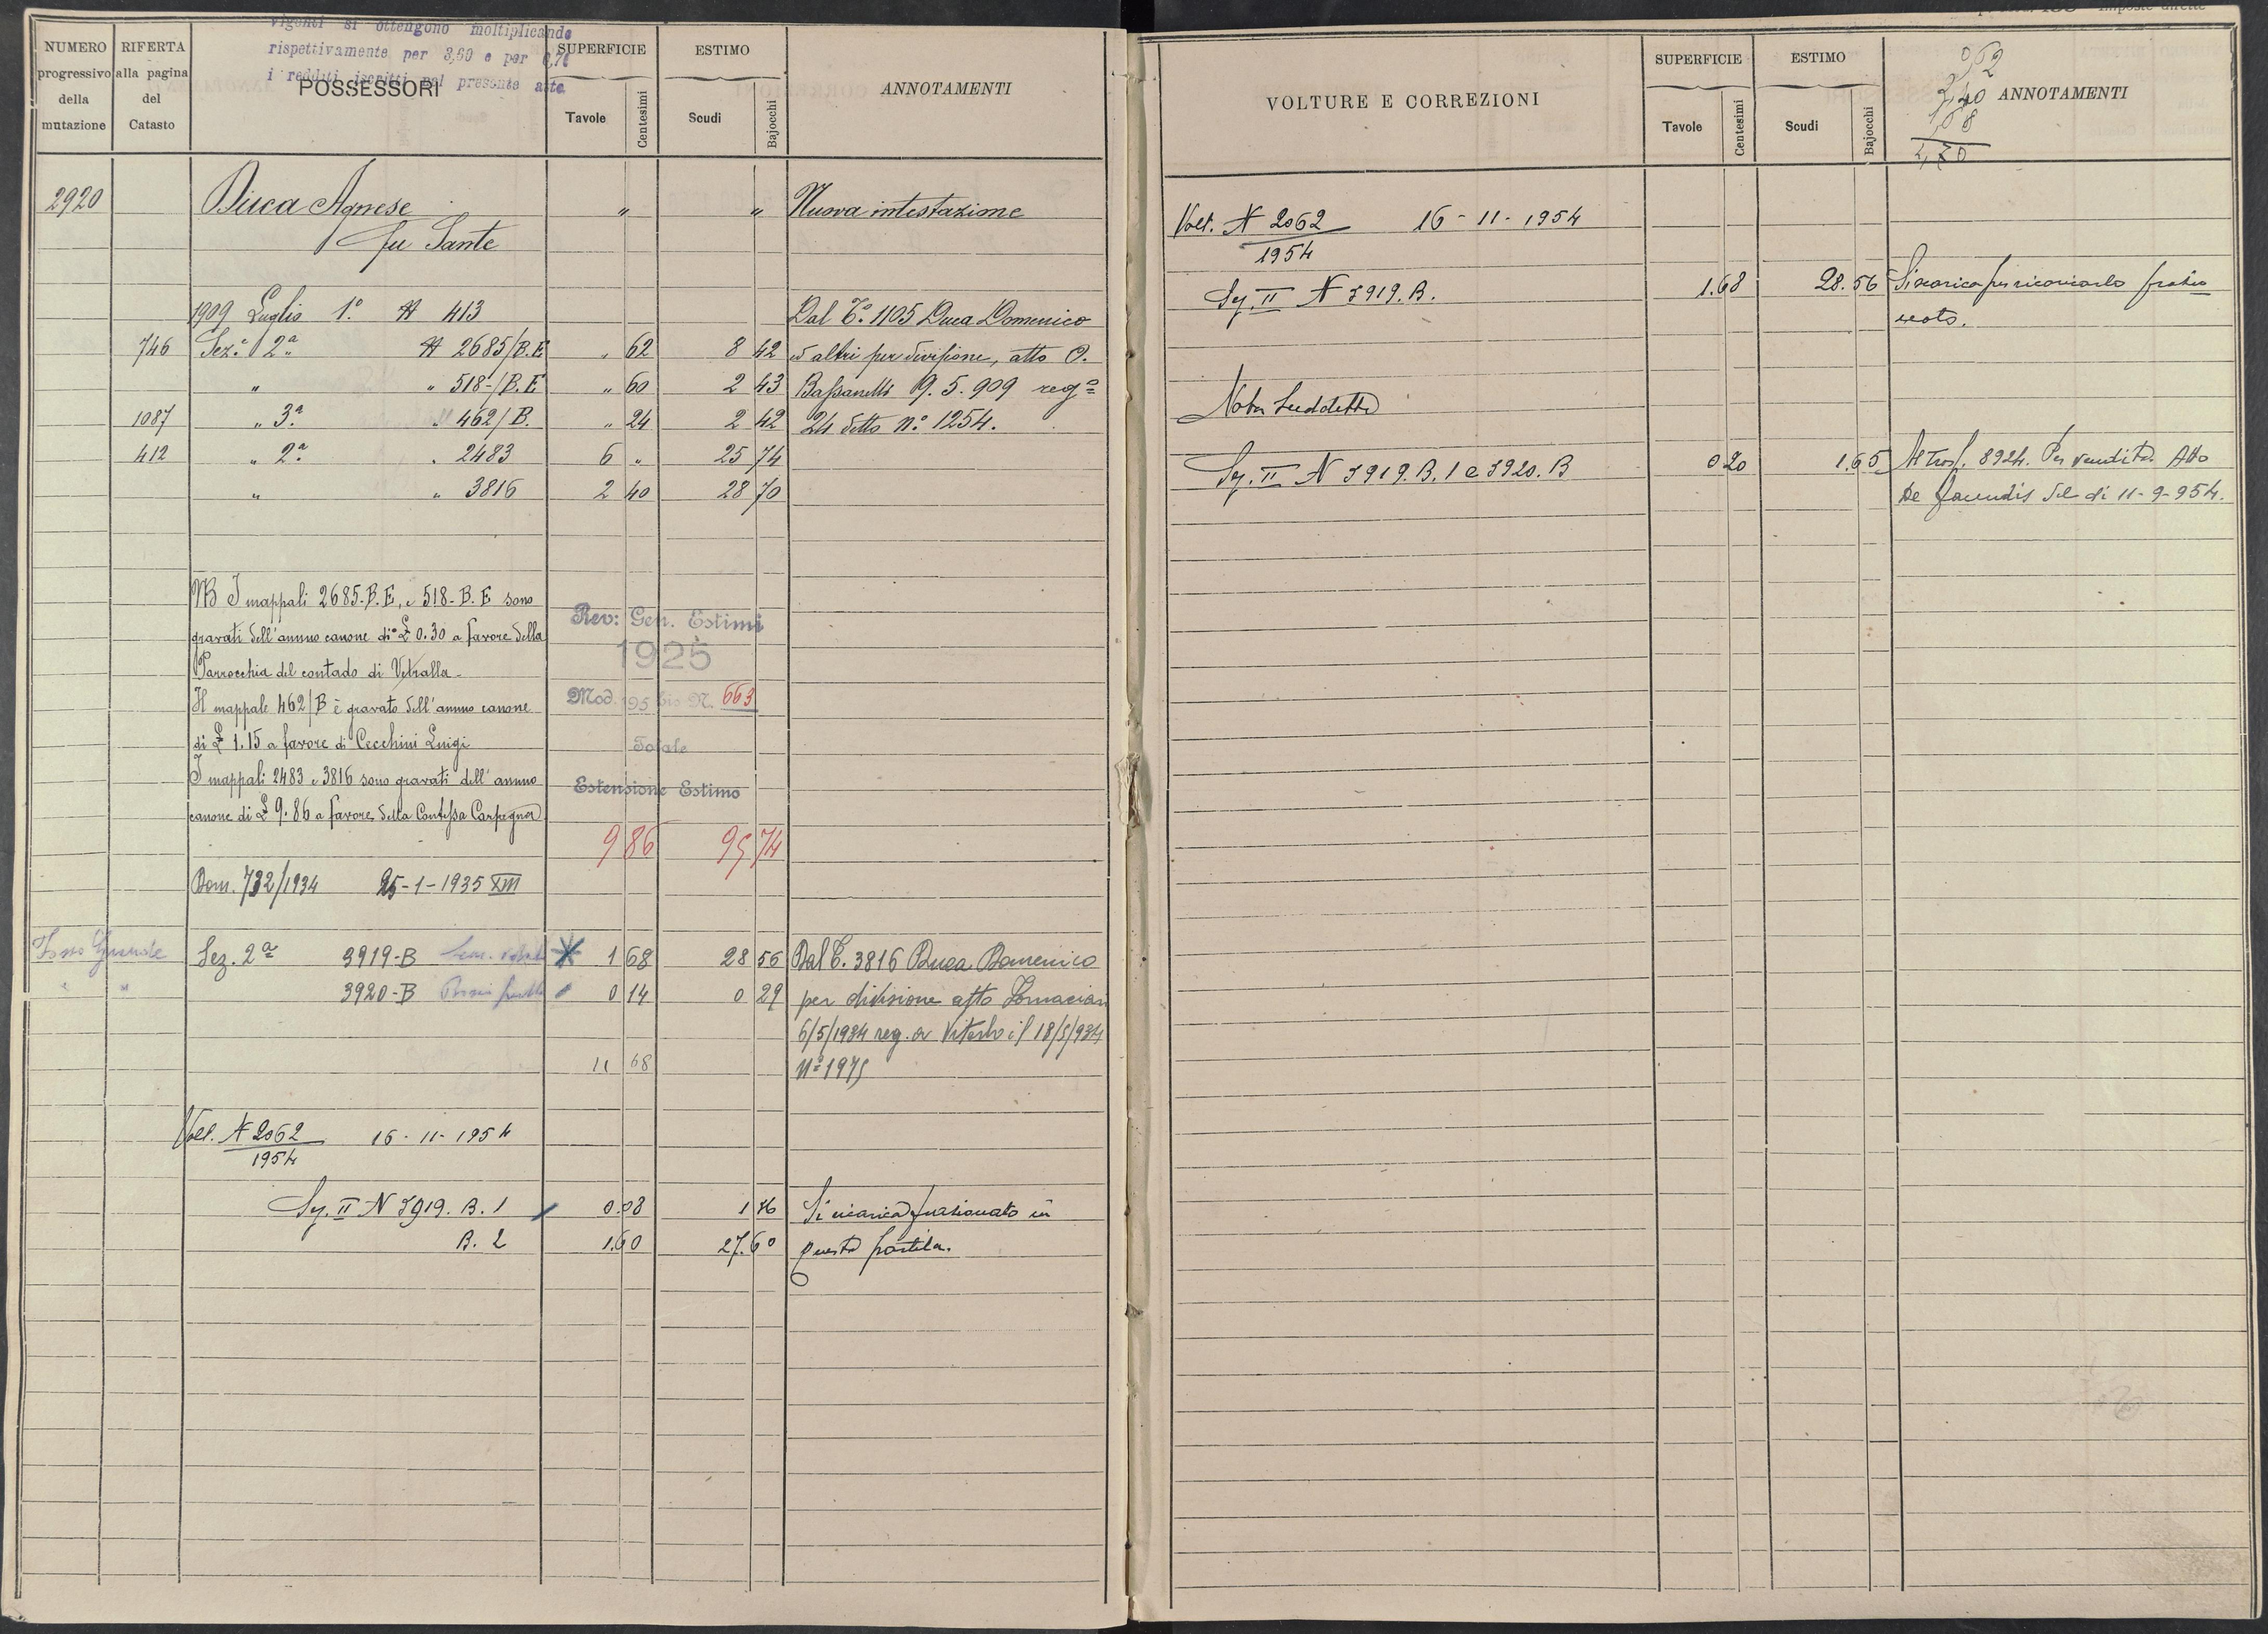 vigenti si ottengono moltiplicando
rispettivamente per 3,60 e per 0,70
i redditi iscritti nel presente atto
NUMERO progressivo della mutazione
RIFERTA alla pagina del Catasto
POSSESSORI
SUPERFICIE Tavole Centesimi
ESTIMO Scudi Bajocchi
ANNOTAMENTI
2920 Duca Agnese " " Nuova intestazione
fu Sante
1909 Luglio 1.° N 413 Dal T.° 1105 Duca Domenico
746 Sez.e 2a N 2685/B.E " 62 8 42 ed altri per divisione, atto O.
" " 518-/B.E " 60 2 43 Bassanelli 9.5.909 reg°
1087 " 3a " 462/B. " 24 2 42 24 detto n.° 1254.
412 " 2a " 2483 6 " 25 74
" " 3816 2 40 28 70
NB I mappali 2685-B.E, e 518-B.E sono
gravati dell'annuo canone di £ 0.30 a favore della
Parrocchia del contado di Vetralla-
Il mappale 462/B è gravato dell'annuo canone
di £ 1.15 a favore di Cecchini Luigi
I mappali 2483 e 3816 sono gravati dell'annuo
canone di £ 9.86 a favore della Contessa Carpegna
Rev: Gen. Estimi
1925
Mod. 195 bis N. 663
Totale
Estensione Estimo
9 86 95 74
Dom. 732/1934 25-1-1935 XIII
Fosso Grande Sez. 2a 3919-B 1 68 28 56 Dal T. 3816 Duca Domenico
" " 3920-B 0 14 0 29 per divisione atto Fornaciari
6/5/1934 reg. a Viterbo il 18/5/934
11 68 N° 1975
Volt. N 2062 16-11-1954
1954
Sez. II N 3919. B. 1 0.08 1 36 Si ricarica frazionato in
B. 2 1.60 27.60 questa partita.
VOLTURE E CORREZIONI
SUPERFICIE Tavole Centesimi
ESTIMO Scudi Bajocchi
ANNOTAMENTI
Volt. N 2062 16-11-1954
1954
Sez. II N 3919.B. 1.68 28.56 Si scarica per ricaricarlo frazio
nato.
Nota Suddetta
Sez. II N 3919.B.1 e 3920.B 0 20 1.65 Al Trasf. 8924. Per vendita Atto
De Facendis del dì 11-9-954.